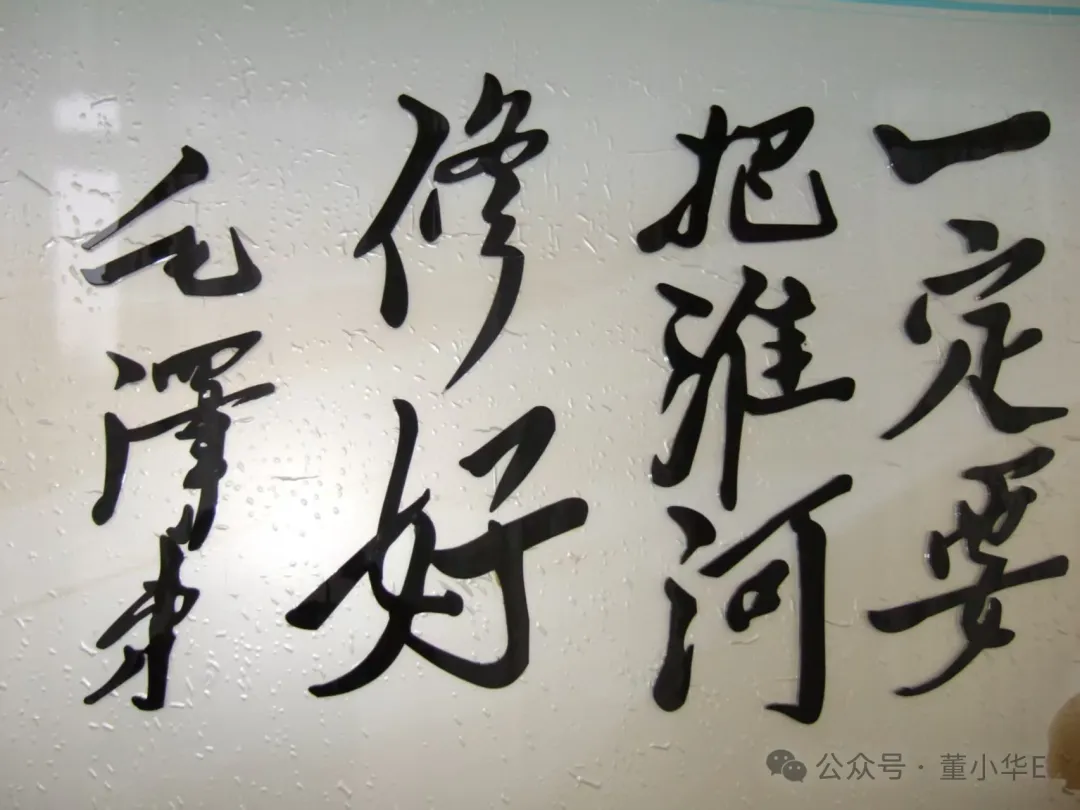 一定要
把淮河
修好
毛澤东
公众号·董小华E